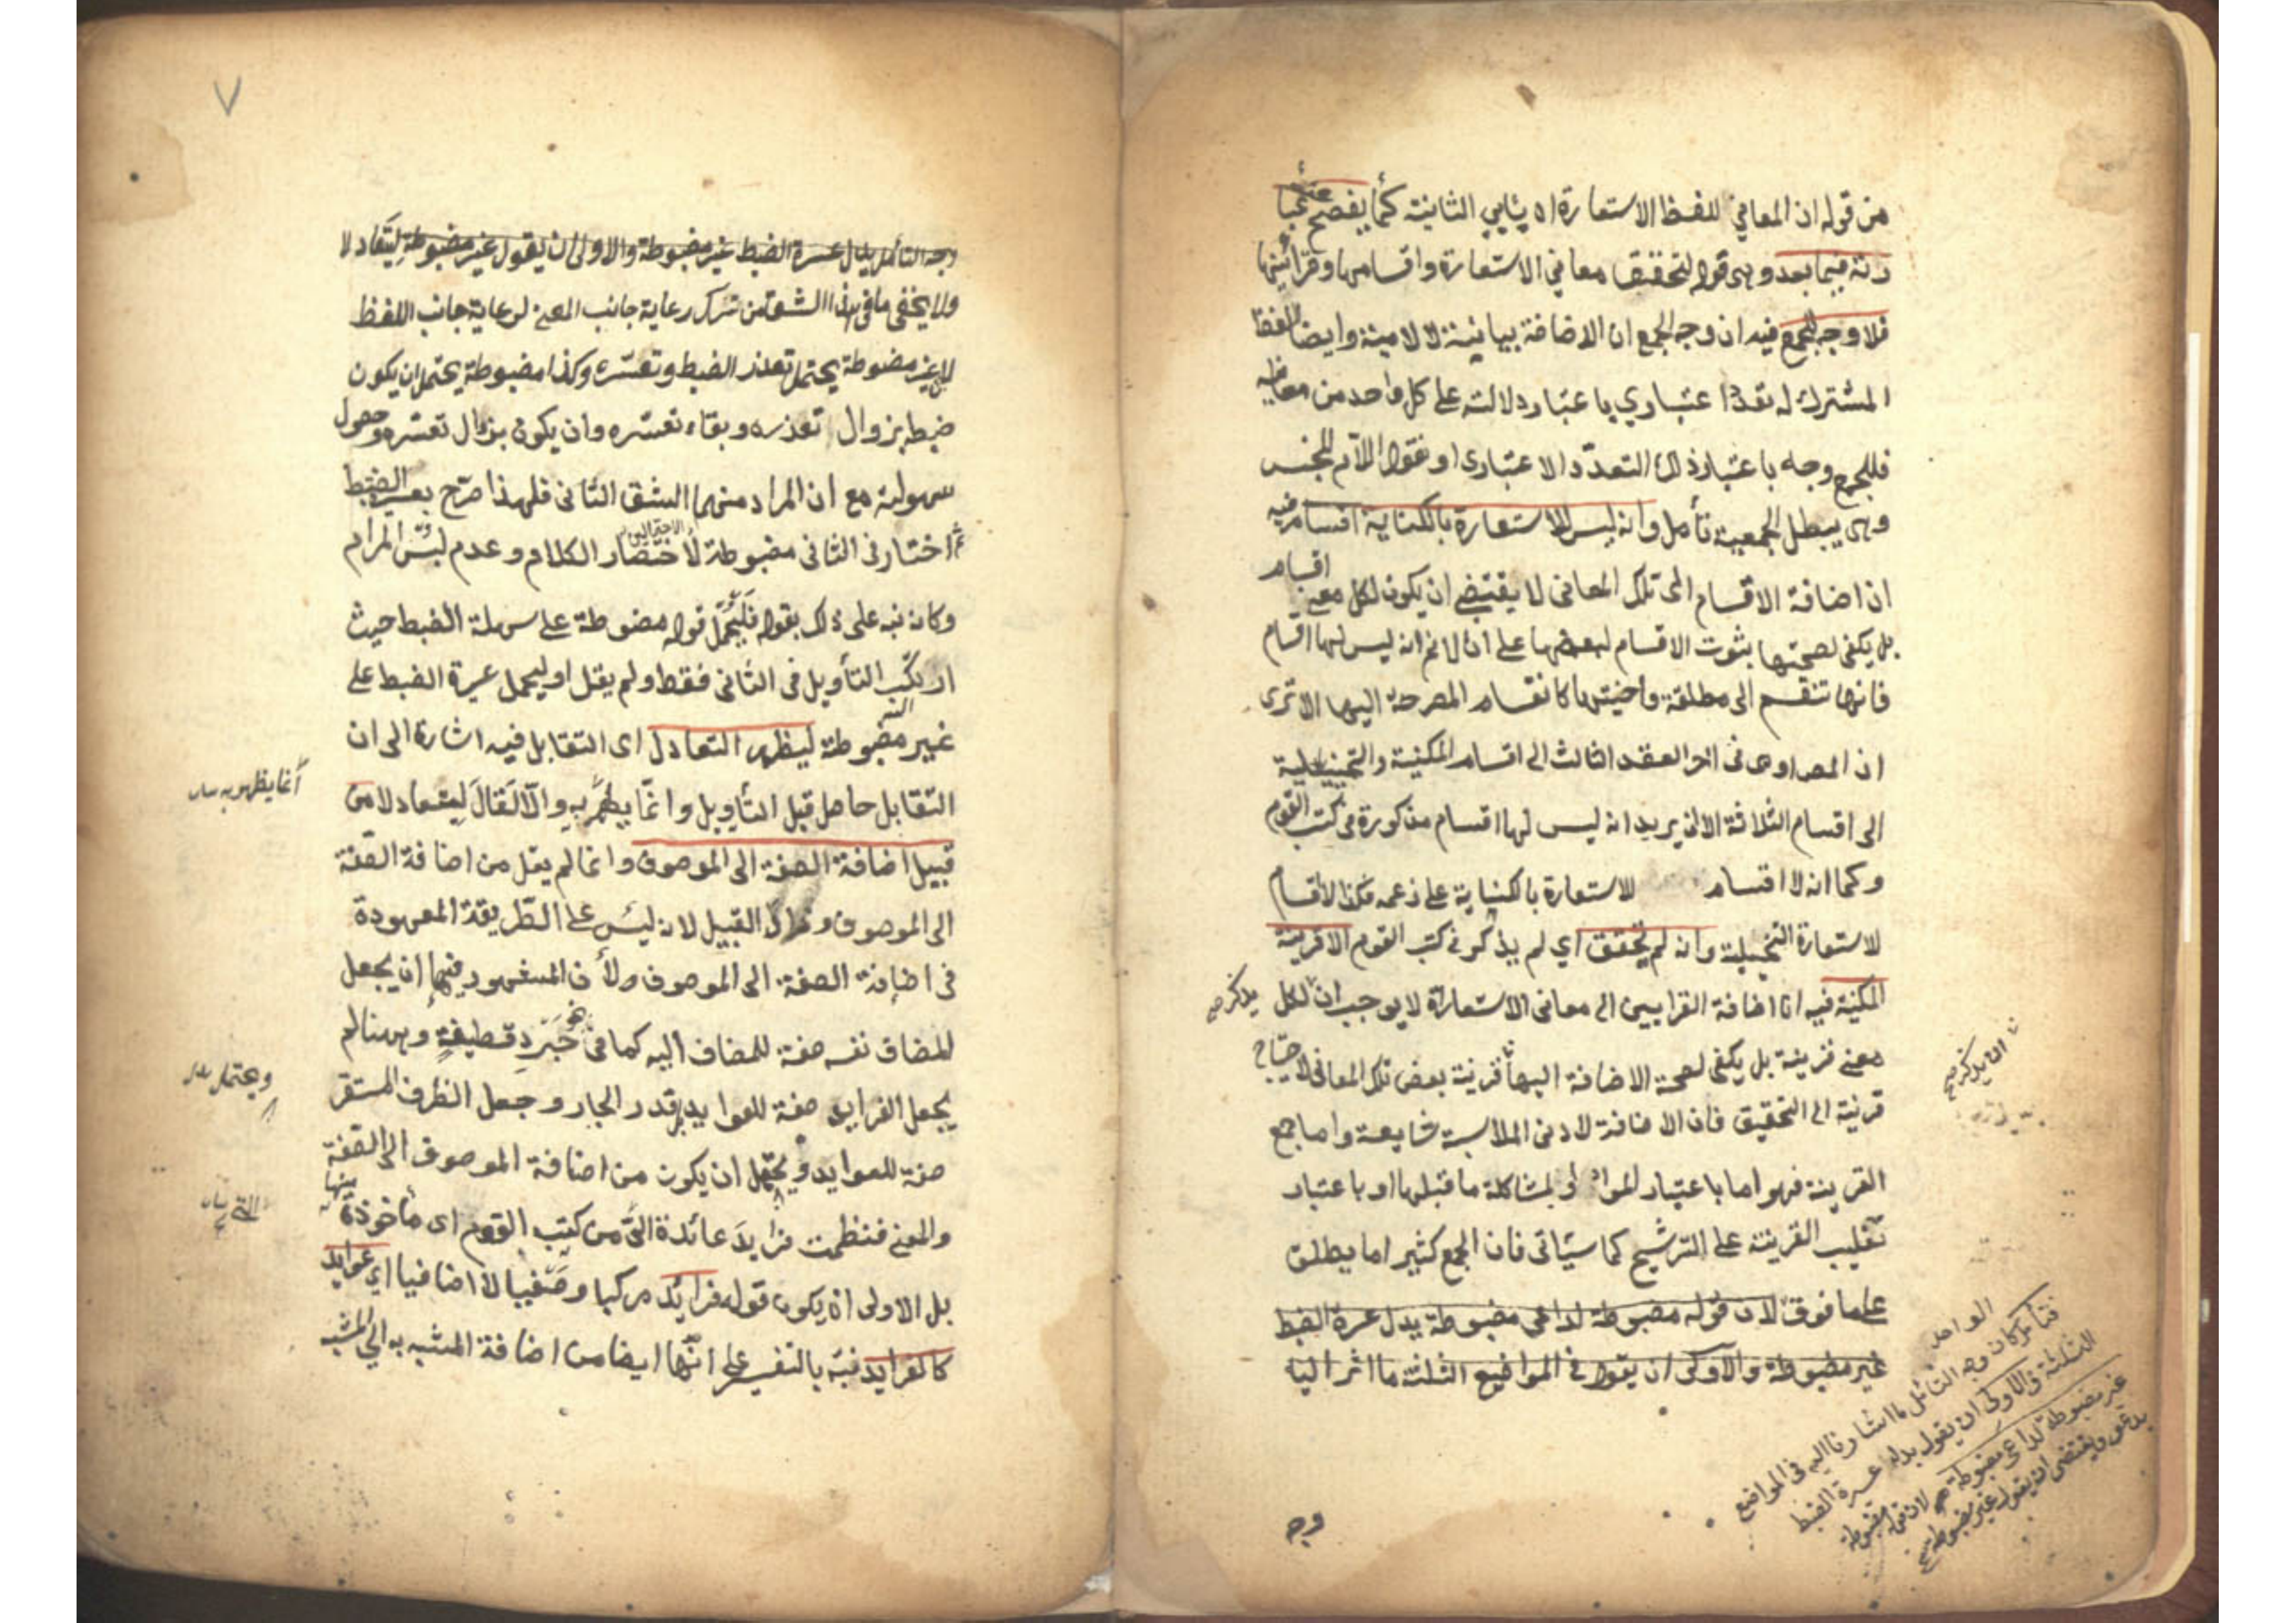 من قوله ان المعاني للفظ الاستعارة اه ينابي الثانية كما يفصح عنه عبا
رته فيما بعد وهي قوله لتحقيق معاني الاستعارة واقسامها وقرائنها
فلا وجه للجمع فيه ان وجه الجمع ان الاضافة بيانية لا لامية وايضا للفظ
المشترك له تعدد اعتباري باعتبار دلالته على كل واحد من معانيه
فللجمع وجه باعتبار ذلك التعدد الاعتباري او نقول اللام للجنس
وهي يبطل الجمعية تأمل وانه ليس للاستعارة بالكناية اقسام فيه
ان اضافة الاقسام الى تلك المعاني لا يقتضي ان يكون لكل معنى اقسام
بل يكفي لصحتها ثبوت الاقسام لبعضها على ان لا نم انه ليس لها اقسام
فانها تنقسم الى مطلقة واختيها كانقسام المصرحة اليها الا ترى
ان المص اومى في اخر العقد الثالث الى اقسام المكنية والتخييلية
الى اقسام الثلاثة الا ان يريد انه ليس لها اقسام مذكورة في كتب القوم
وكما انه لا اقسام للاستعارة بالكناية على زعمه فكذا لا اقسام
للاستعارة التخييلية وانه لم يتحقق اي لم يذكر في كتب القوم الا قرينة
المكنية فيه ان اضافة القرايين الى معاني الاستعارة لا يوجب ان لكل
يذكر صح
معنى قرينة بل يكفي لصحة الاضافة اليها قرينة بعض تلك المعاني لاحتياج
قرينة الى التحقيق فان الاضافة لادنى الملابسة شايعة واما جمع
القرينة فهو اما باعتبار المواد او لمشاكلة ما قبلها او باعتبار
تغليب القرينة على الترشيح كما سيأتي فان الجمع كثير اما يطلق
على ما فوق الواحد
لان قوله مضبوطة لداعي مضبوطة بدل عسرة الضبط
غير مضبوطة والاولى ان يقول في المواضيع الثلثة ما اشر اليه
فتأمل كان وجه التأمل ما اشارنا اليه في المواضع
الثلثة والاولى ان يقول بدل عسرة الضبط
غير مضبوطة لداعي مضبوطة لان قوله مضبوطة
يدعي ويقتضي ان يقول غير مضبوطة صح
وجه
٧
وجه التأمل بدل عسرة الضبط غير مضبوطة والاولى ان يقول غير مضبوطة ليتعادلا
ولا يخفى ما في هذا الشق من ترك رعاية جانب المعنى لرعاية جانب اللفظ
لان غير مضبوطة يحتمل تعذر الضبط وتعسره وكذا مضبوطة يحتمل ان يكون
ضبطه بزوال تعذره وبقاء تعسره وان يكون بزوال تعسره وحصول
سهولته مع ان المراد منهما الشق الثاني فلهذا صرح بعسرة الضبط
ثم اختار في الثاني مضبوطة لاختصار الكلام وعدم لبس المرام
الاحتمالين
وكانه نبه على ذلك بقوله فليحمل قوله مضبوطة على سهلة الضبط حيث
ارتكب التأويل في الثاني فقط ولم يقل او ليحمل عسرة الضبط على
غير مضبوطة ليظهر التعادل اى التقابل فيه اشارة الى ان
التقابل حاصل قبل التأويل وانما يظهر به والا لقال ليتعادلا من
انما يظهر به
قبيل اضافة الصفة الى الموصوف وانما لم يقل من اضافة الصفة
الى الموصوف وزاد القبيل لانه ليس على الطريقة المعهودة
في اضافة الصفة الى الموصوف ولأن المشهور فيها ان يجعل
المضاف نفسه صفة للمضاف اليه كما في جرد قطيفة وههنا لم
يجعل الفرايد صفة للعوايد بل قدر الجار وجعل الظرف المستقر
صفة للعوايد ويحتمل ان يكون من اضافة الموصوف الى الصفة
ويحتمل
والمعنى فنظمت فرايد عائدة الي من كتب القوم اى مأخوذة منها
بل الاولى ان يكون قوله فرائد مركبا وصفيا لا اضافيا اي عوايد
كالفرايد فنبه بالتفسير على انها ايضا من اضافة المشبه به الى المشبه